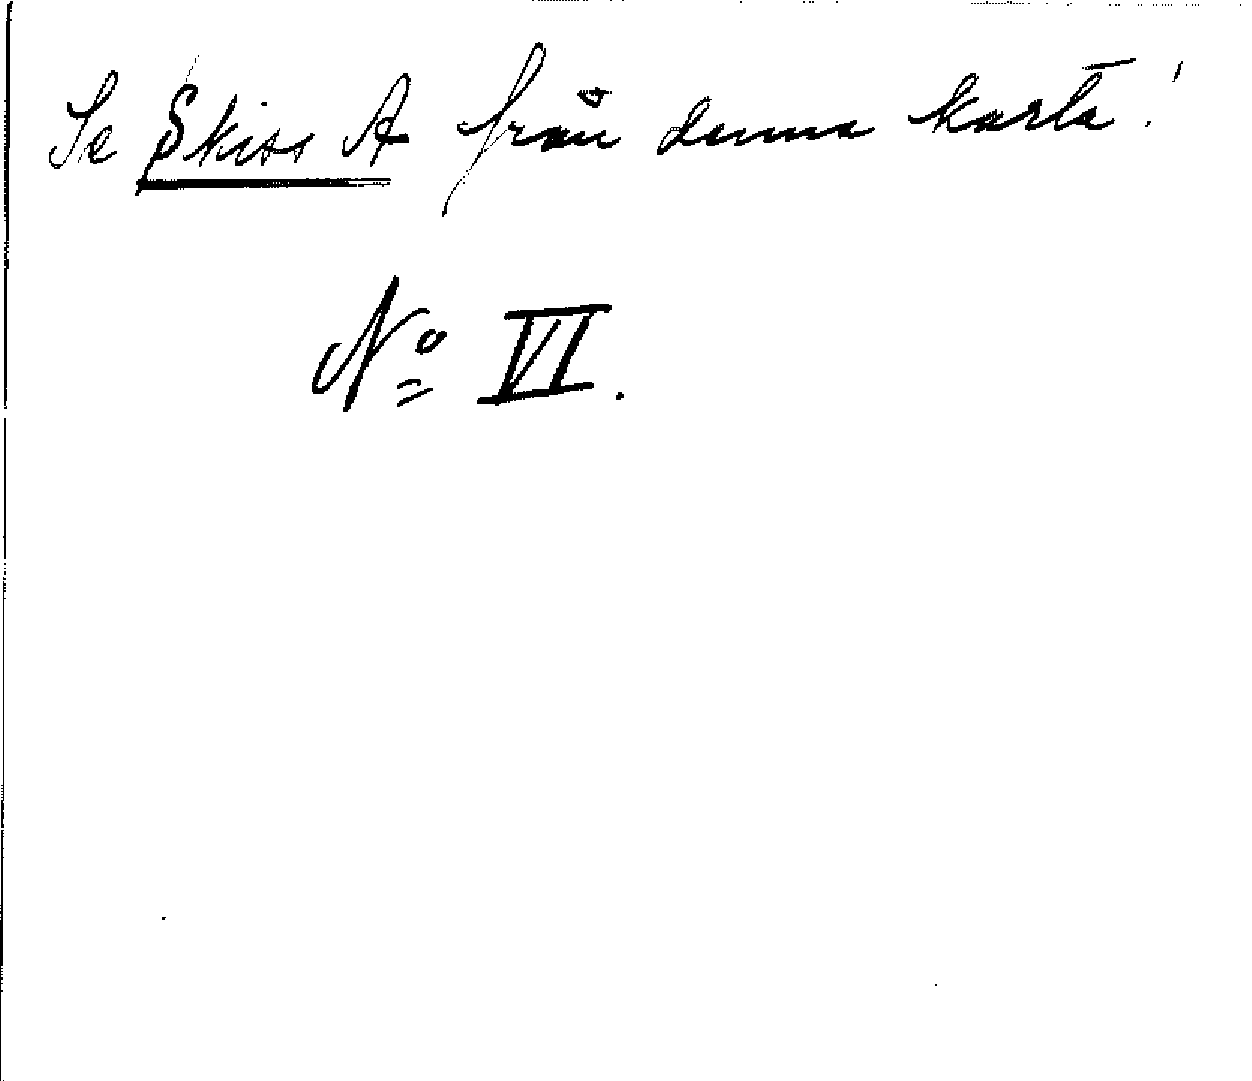 Se Skiss A från denna karta!
No VI.